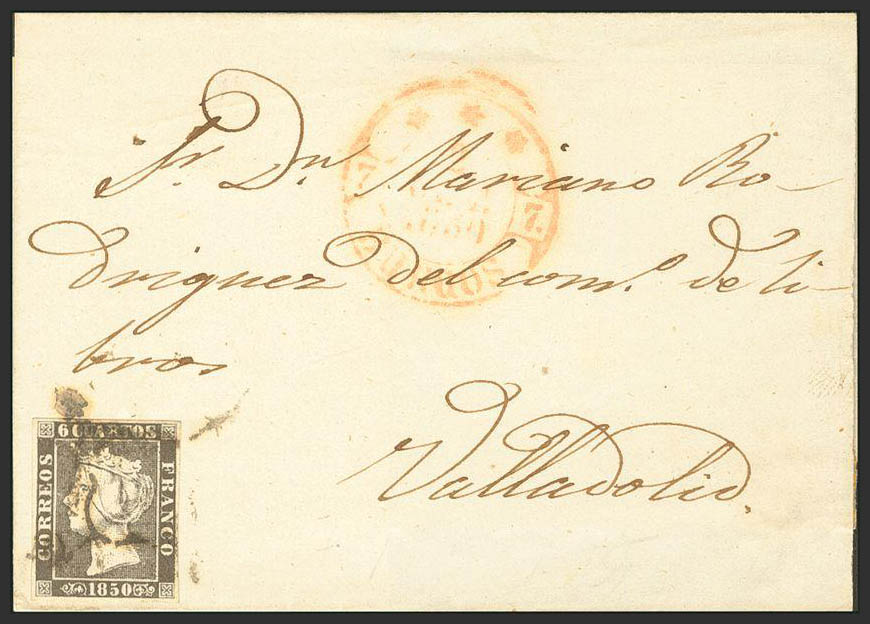 Sr. Dn. Mariano Ro-
driguez del com.o de li-
bros
Valladolid.
BURGOS
6 CUARTOS
CORREOS
FRANCO
1850